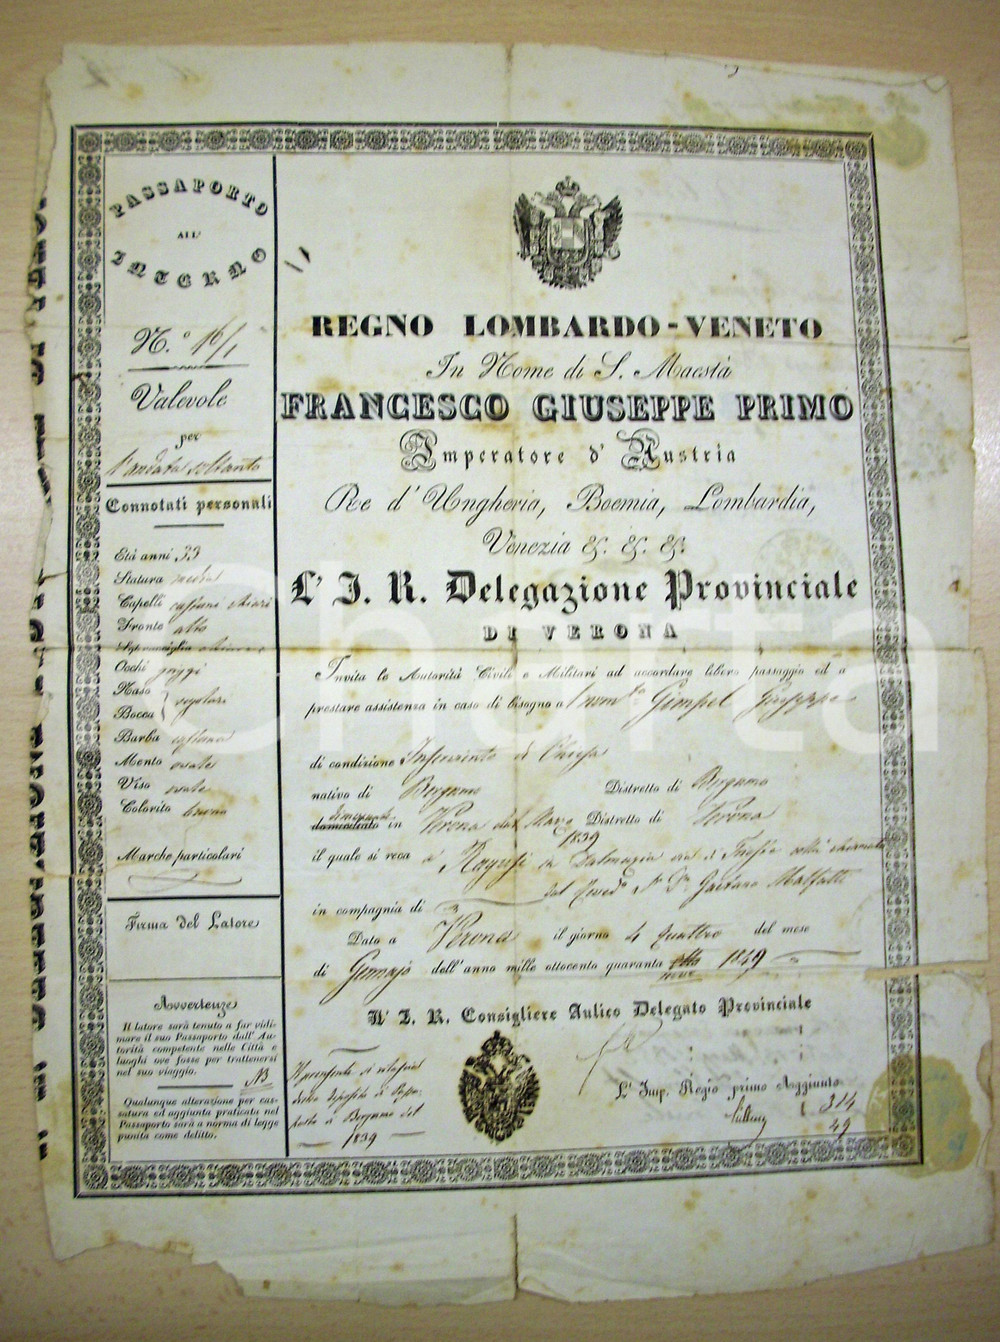 PASSAPORTO
ALL'
INTERNO
N.º 16/1
Valevole
per
l'andata soltanto
Connotati personali
Età anni 33
Statura media
Capelli castani chiari
Fronte alta
Sopracciglia
Occhi griggi
Naso
regolari
Bocca
Barba castana
Mento ovale
Viso ovale
Colorito bruno
Marche particolari
Firma del Latore
Avvertenze
Il latore sarà tenuto a far vidi-
mare il suo Passaporto dall' Au-
torità competente nelle Città e
luoghi ove fosse per trattenersi
nel suo viaggio.
NB
Qualunque alterazione per cas-
satura ed aggiunta praticata nel
Passaporto sarà a norma di legge
punita come delitto.
REGNO LOMBARDO-VENETO
In Nome di S. Maestà
FRANCESCO GIUSEPPE PRIMO
Imperatore d' Austria
Re d' Ungheria, Boemia, Lombardia,
Venezia &. &. &.
L' I. R. Delegazione Provinciale
DI VERONA
Invita le Autorità Civili e Militari ad accordare libero passaggio ed a
prestare assistenza in caso di bisogno a Gimpel Giuseppe
di condizione Inserviente di Chiesa
nativo di Bergamo Distretto di Bergamo
domiciliato in Verona dal Marzo Distretto di Verona
1839
il quale si reca a Ragusi in Dalmazia
Gaetano Malfatti
in compagnia di
Dato a Verona il giorno 4 quattro del mese
di Gennajo dell' anno mille ottocento quaranta otto 1849
nove
Il' I. R. Consigliere Aulico Delegato Provinciale
Il presente si rilascia
dietro deposito di Passa-
porto di Bergamo del
1839
L' Imp. Regio primo Aggiunto
314
49
Charta